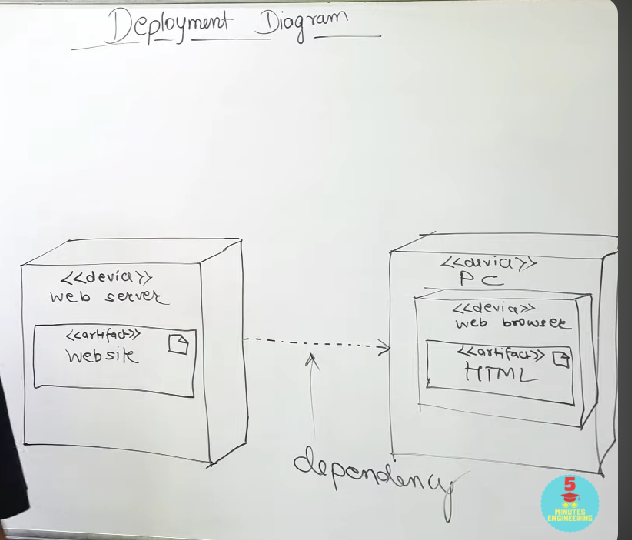 Deployment Diagram
<<device>>
web server
<<artifact>>
Website
<<device>>
PC
<<device>>
web browser
<<artifact>>
HTML
dependency
5
MINUTES
ENGINEERING